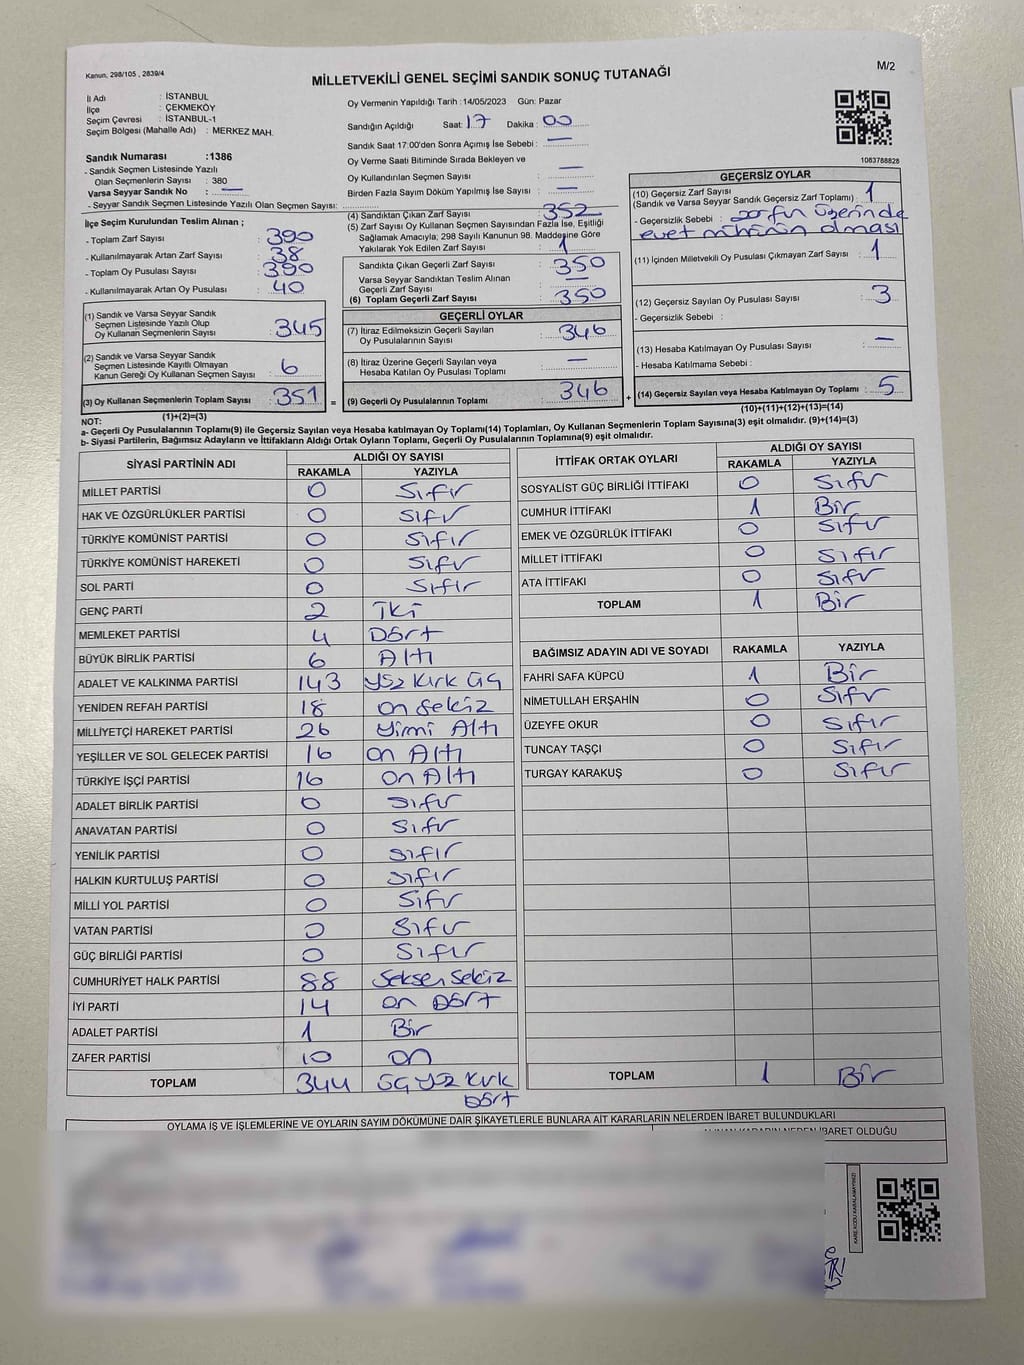 Kanun, 298/105 , 2839/4
MİLLETVEKİLİ GENEL SEÇİMİ SANDIK SONUÇ TUTANAĞI
M/2
İl Adı : İSTANBUL
İlçe : ÇEKMEKÖY
Seçim Çevresi : İSTANBUL-1
Seçim Bölgesi (Mahalle Adı) : MERKEZ MAH.
Sandık Numarası :1386
- Sandık Seçmen Listesinde Yazılı
Olan Seçmenlerin Sayısı : 380
Varsa Seyyar Sandık No : —
- Seyyar Sandık Seçmen Listesinde Yazılı Olan Seçmen Sayısı:
Oy Vermenin Yapıldığı Tarih :14/05/2023 Gün: Pazar
Sandığın Açıldığı Saat: 17 Dakika : 00
Sandık Saat 17:00'den Sonra Açımış İse Sebebi : —
Oy Verme Saati Bitiminde Sırada Bekleyen ve
Oy Kullandırılan Seçmen Sayısı : —
Birden Fazla Sayım Döküm Yapılmış İse Sayısı : —
1083788828
İlçe Seçim Kurulundan Teslim Alınan ;
- Toplam Zarf Sayısı : 390
- Kullanılmayarak Artan Zarf Sayısı : 38
- Toplam Oy Pusulası Sayısı : 390
- Kullanılmayarak Artan Oy Pusulası : 40
(1) Sandık ve Varsa Seyyar Sandık
Seçmen Listesinde Yazılı Olup
Oy Kullanan Seçmenlerin Sayısı : 345
(2) Sandık ve Varsa Seyyar Sandık
Seçmen Listesinde Kayıtlı Olmayan
Kanun Gereği Oy Kullanan Seçmen Sayısı : 6
(3) Oy Kullanan Seçmenlerin Toplam Sayısı : 351 =
(1)+(2)=(3)
(4) Sandıktan Çıkan Zarf Sayısı : 352
(5) Zarf Sayısı Oy Kullanan Seçmen Sayısından Fazla İse, Eşitliği
Sağlamak Amacıyla; 298 Sayılı Kanunun 98. Maddesine Göre
Yakılarak Yok Edilen Zarf Sayısı : 1
Sandıkta Çıkan Geçerli Zarf Sayısı : 350
Varsa Seyyar Sandıktan Teslim Alınan
Geçerli Zarf Sayısı : —
(6) Toplam Geçerli Zarf Sayısı : 350
GEÇERLİ OYLAR
(7) İtiraz Edilmeksizin Geçerli Sayılan
Oy Pusulalarının Sayısı : 346
(8) İtiraz Üzerine Geçerli Sayılan veya
Hesaba Katılan Oy Pusulası Toplamı : —
(9) Geçerli Oy Pusulalarının Toplamı : 346 +
GEÇERSİZ OYLAR
(10) Geçersiz Zarf Sayısı
(Sandık ve Varsa Seyyar Sandık Geçersiz Zarf Toplamı) : 1
- Geçersizlik Sebebi : zarfın üzerinde
evet mührünün olması
(11) İçinden Milletvekili Oy Pusulası Çıkmayan Zarf Sayısı : 1
(12) Geçersiz Sayılan Oy Pusulası Sayısı : 3
- Geçersizlik Sebebi :
(13) Hesaba Katılmayan Oy Pusulası Sayısı : —
- Hesaba Katılmama Sebebi :
(14) Geçersiz Sayılan veya Hesaba Katılmayan Oy Toplamı : 5
(10)+(11)+(12)+(13)=(14)
NOT:
a- Geçerli Oy Pusulalarının Toplamı(9) ile Geçersiz Sayılan veya Hesaba Katılmayan Oy Toplamı(14) Toplamları, Oy Kullanan Seçmenlerin Toplam Sayısına(3) eşit olmalıdır. (9)+(14)=(3)
b- Siyasi Partilerin, Bağımsız Adayların ve İttifakların Aldığı Ortak Oyların Toplamı, Geçerli Oy Pusulalarının Toplamına(9) eşit olmalıdır.
SİYASİ PARTİNİN ADI ALDIĞI OY SAYISI
RAKAMLA YAZIYLA
MİLLET PARTİSİ 0 Sıfır
HAK VE ÖZGÜRLÜKLER PARTİSİ 0 Sıfır
TÜRKİYE KOMÜNİST PARTİSİ 0 Sıfır
TÜRKİYE KOMÜNİST HAREKETİ 0 Sıfır
SOL PARTİ 0 Sıfır
GENÇ PARTİ 2 İki
MEMLEKET PARTİSİ 4 Dört
BÜYÜK BİRLİK PARTİSİ 6 Altı
ADALET VE KALKINMA PARTİSİ 143 Yüz Kırk Üç
YENİDEN REFAH PARTİSİ 18 on Sekiz
MİLLİYETÇİ HAREKET PARTİSİ 26 Yirmi Altı
YEŞİLLER VE SOL GELECEK PARTİSİ 16 on Altı
TÜRKİYE İŞÇİ PARTİSİ 16 on Altı
ADALET BİRLİK PARTİSİ 0 Sıfır
ANAVATAN PARTİSİ 0 Sıfır
YENİLİK PARTİSİ 0 Sıfır
HALKIN KURTULUŞ PARTİSİ 0 Sıfır
MİLLİ YOL PARTİSİ 0 Sıfır
VATAN PARTİSİ 0 Sıfır
GÜÇ BİRLİĞİ PARTİSİ 0 Sıfır
CUMHURİYET HALK PARTİSİ 88 Seksen Sekiz
İYİ PARTİ 14 on Dört
ADALET PARTİSİ 1 Bir
ZAFER PARTİSİ 10 on
TOPLAM 344 Üç Yüz Kırk
Dört
İTTİFAK ORTAK OYLARI ALDIĞI OY SAYISI
RAKAMLA YAZIYLA
SOSYALİST GÜÇ BİRLİĞİ İTTİFAKI 0 Sıfır
CUMHUR İTTİFAKI 1 Bir
EMEK VE ÖZGÜRLÜK İTTİFAKI 0 Sıfır
MİLLET İTTİFAKI 0 Sıfır
ATA İTTİFAKI 0 Sıfır
TOPLAM 1 Bir
BAĞIMSIZ ADAYIN ADI VE SOYADI RAKAMLA YAZIYLA
FAHRİ SAFA KÜPCÜ 1 Bir
NİMETULLAH ERŞAHİN 0 Sıfır
ÜZEYFE OKUR 0 Sıfır
TUNCAY TAŞÇI 0 Sıfır
TURGAY KARAKUŞ 0 Sıfır
TOPLAM 1 Bir
OYLAMA İŞ VE İŞLEMLERİNE VE OYLARIN SAYIM DÖKÜMÜNE DAİR ŞİKAYETLERLE BUNLARA AİT KARARLARIN NELERDEN İBARET BULUNDUKLARI
ALINAN KARARIN NEDEN İBARET OLDUĞU
KARE KODU KARALAMAYINIZ!